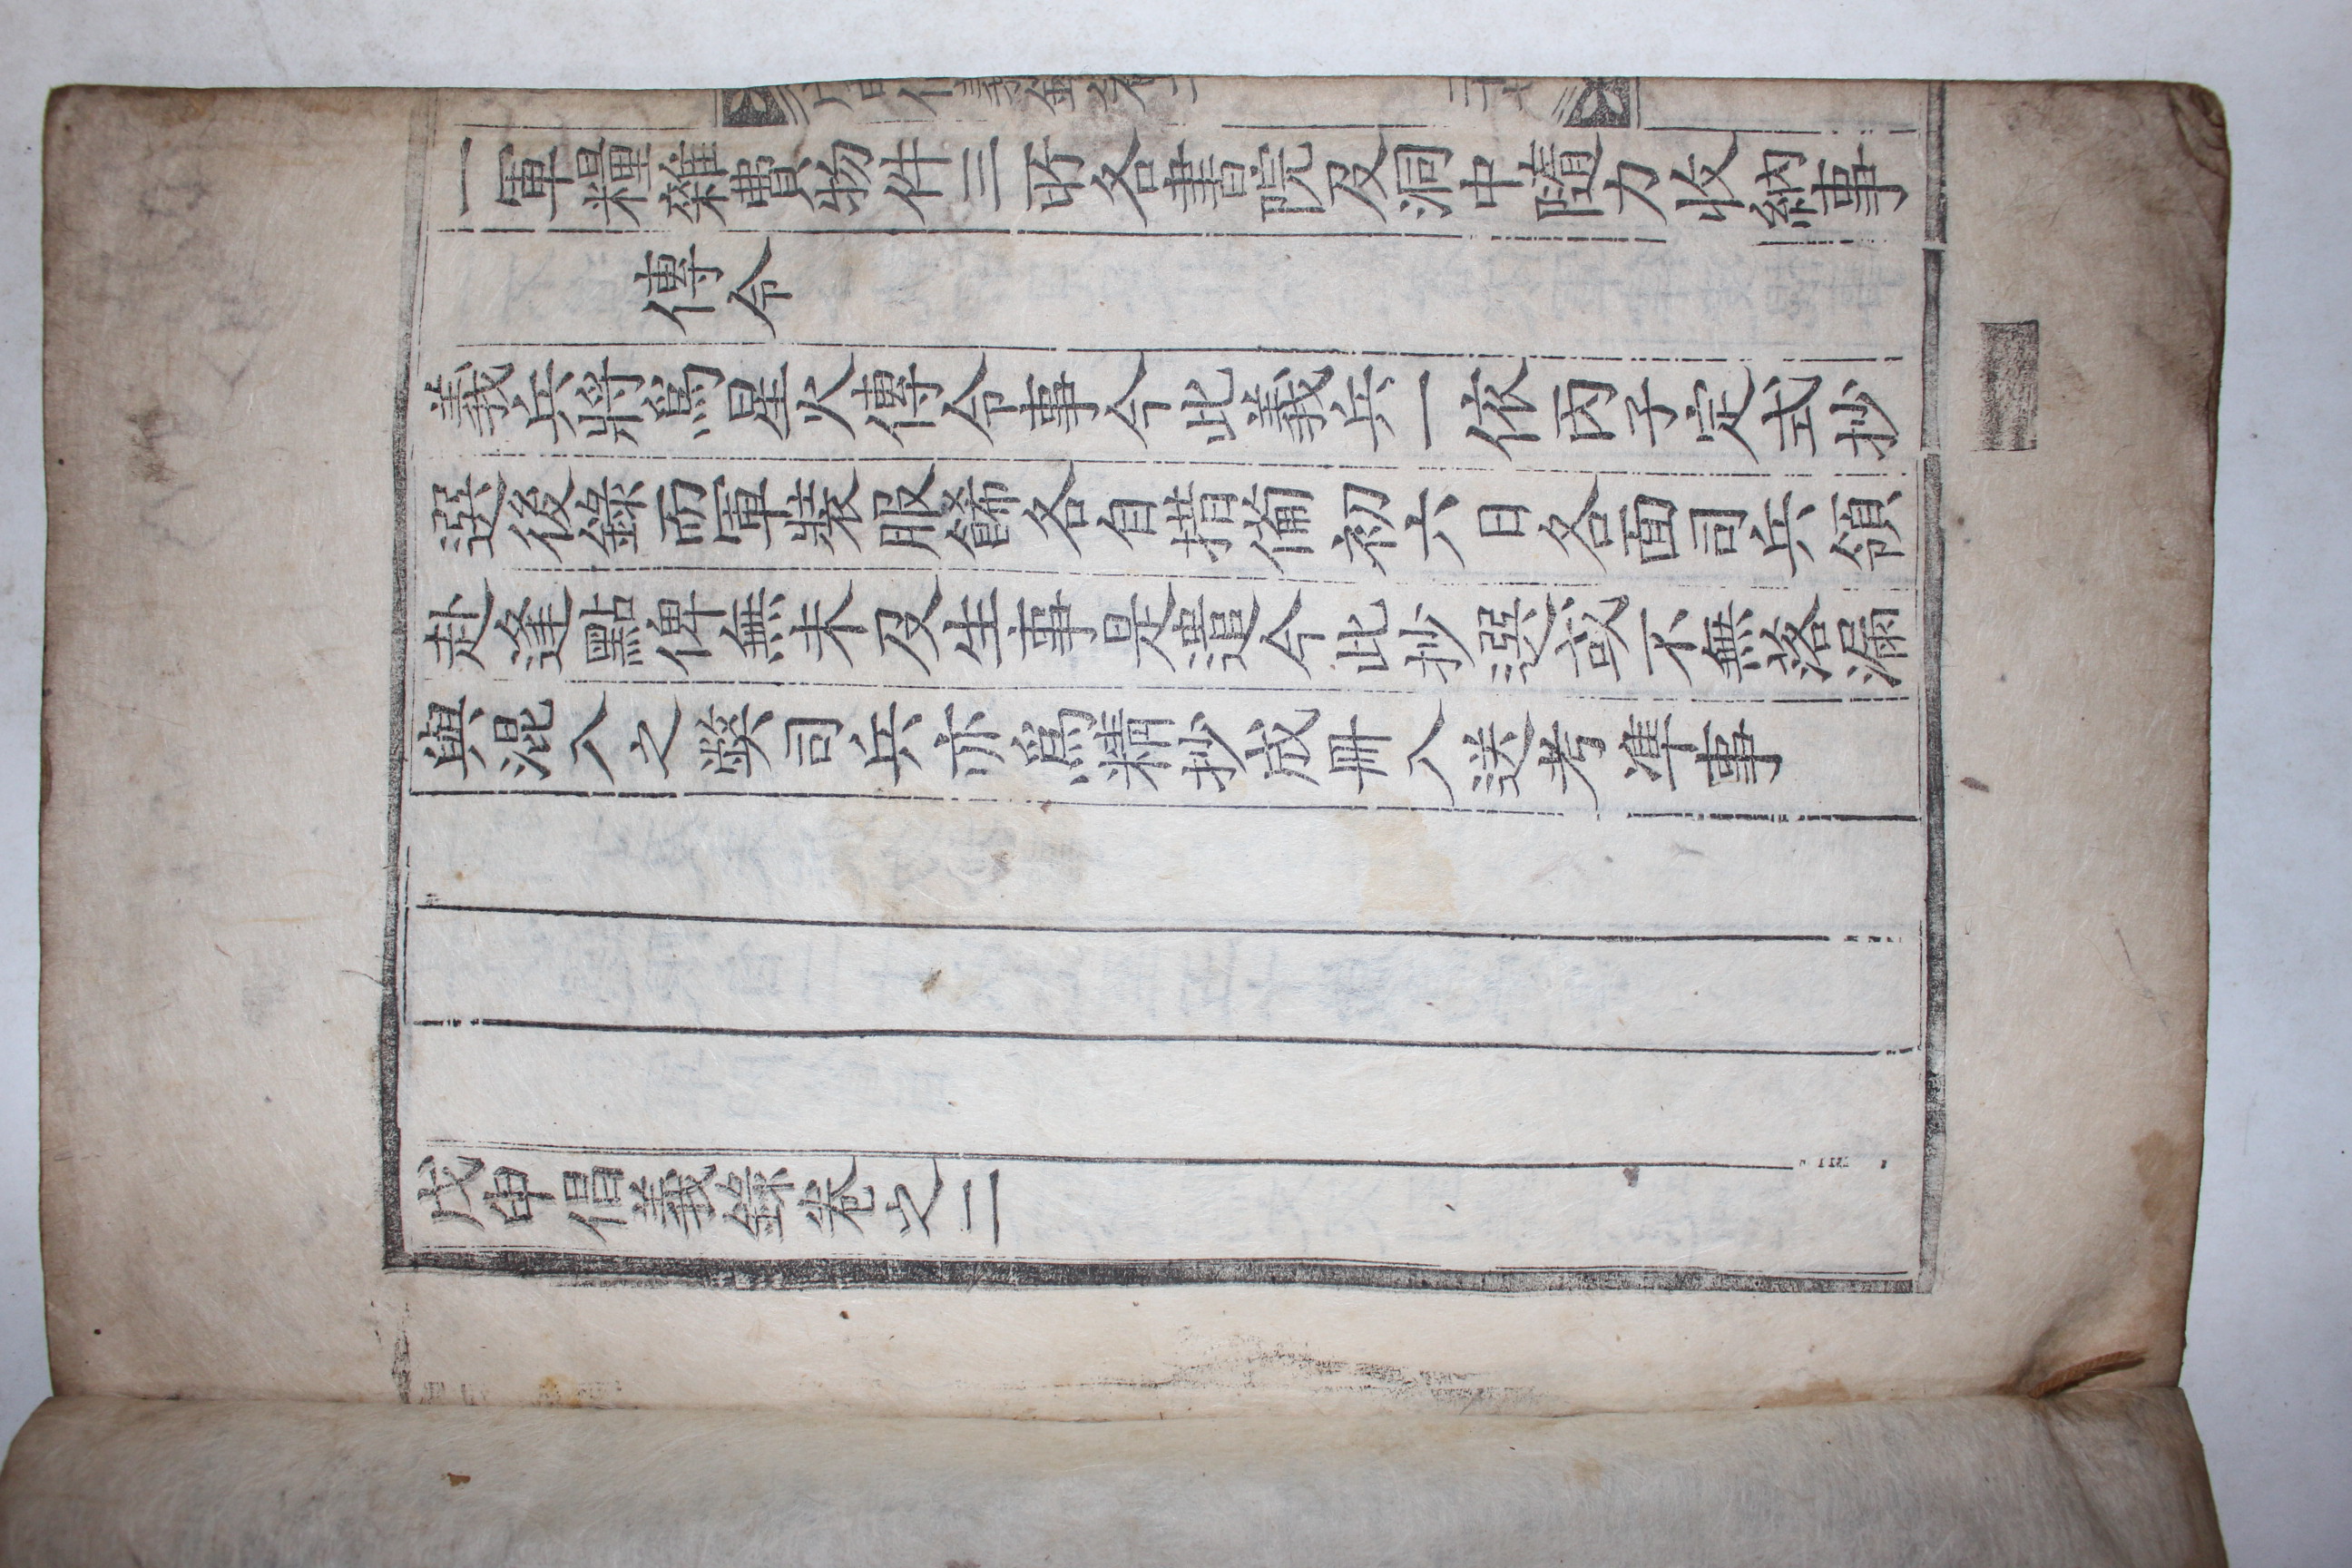 一軍糧雜費物件三所各書院及洞中隨力收納事
傳令
義兵將爲星火傳令事今此義兵一依丙子定式抄
選後錄而軍裝服飾各自措備初六日各面司兵領
赴逢點俾無未及生事是遣今此抄選或不無落漏
與混入之弊司兵亦爲精抄成冊入送考準事
戊申倡義錄卷之二